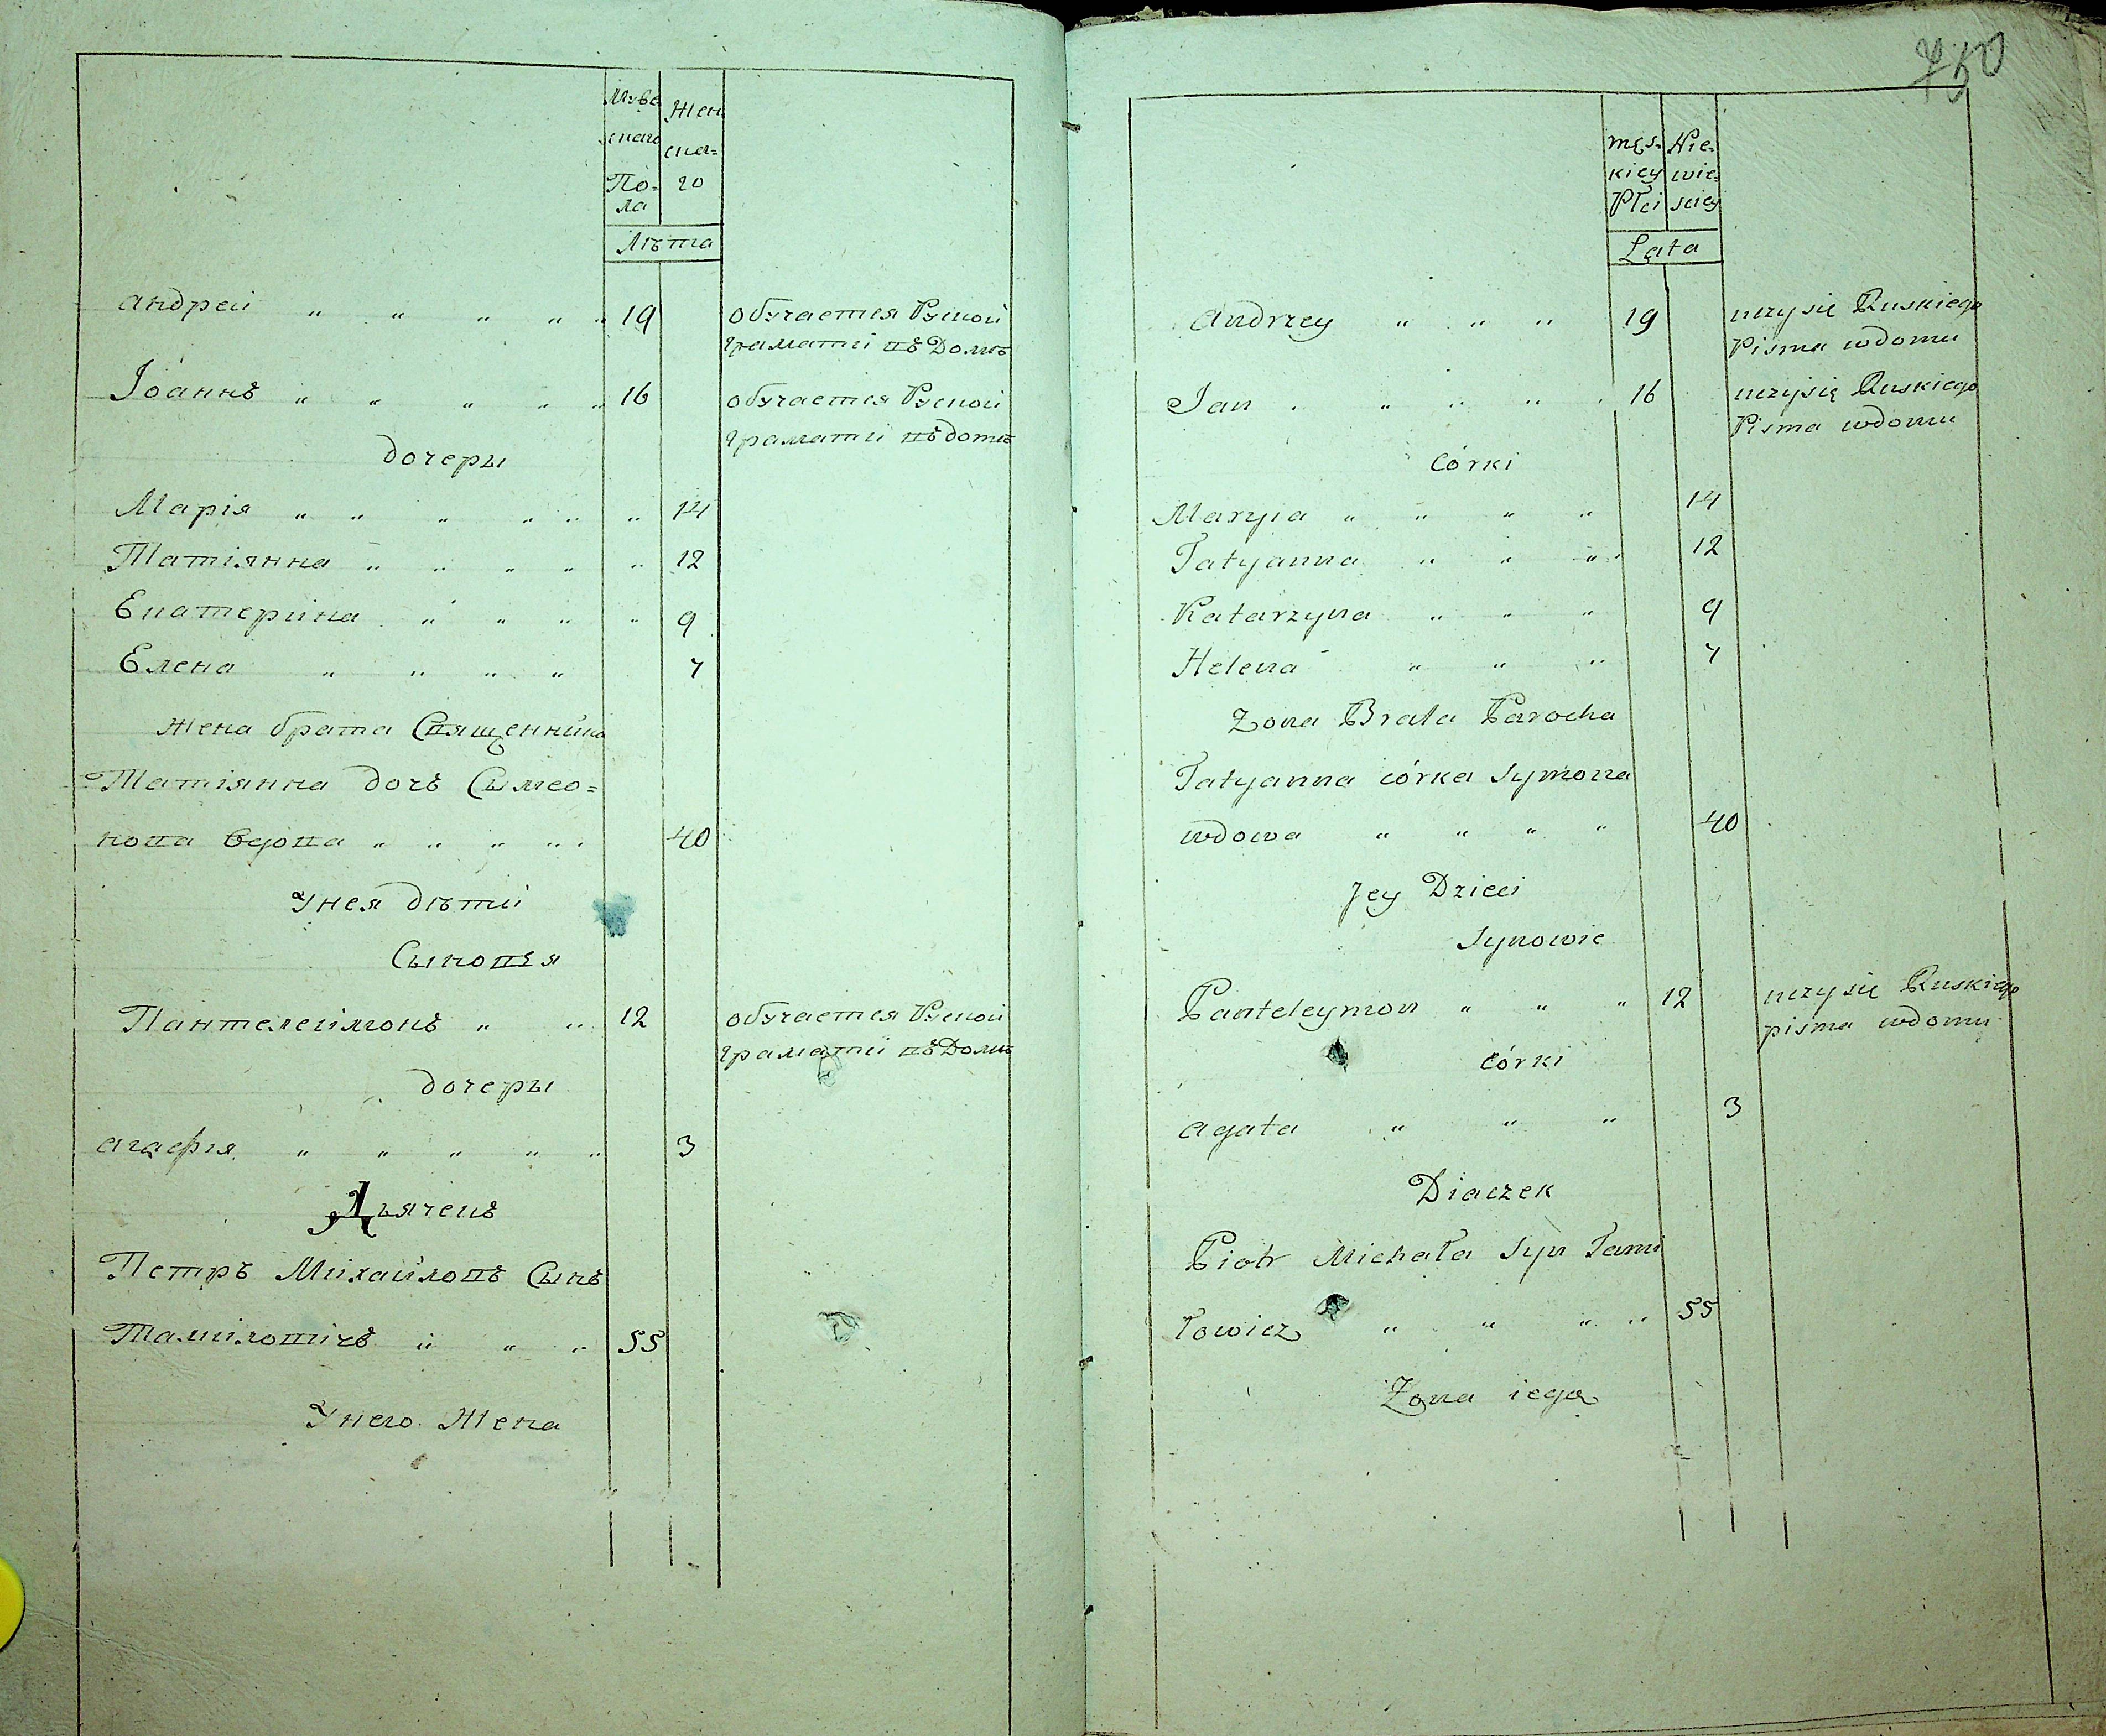 Муже
скаго
По-
ла
Жен
ска-
го
Лѣта
Андрей " " " " " 19
обучается Руской
граматы въ Домѣ
Іоаннъ " " " " " 16
обучается Руской
граматы въ домѣ
дочеры
Марія " " " " " " 14
Татіянна " " " " " 12
Екатерина " " " " 9
Елена " " " " 7
Жена брата Священника
Татіянна дочь Сымео=
нова вдова " " " " " 40
У нея дѣти
Сыновья
Пантелеимонъ " " 12
обучается Руской
граматы въ Домѣ
дочеры
Агафія " " " " " 3
Дьячекъ
Петръ Михайловъ Сынъ
Тамиловичъ " " " 55
У него Жена
750
męs-
kiey
Płci
Nie-
wie-
sciey
Lata
Andrzey " " " 19
uczy się Ruskiego
Pisma w domu
Jan " " " " " 16
uczy się Ruskiego
Pisma w domu
Córki
Maryia " " " " 14
Tatyanna " " " 12
Katarzyna " " " 9
Helena " " " 7
Zona Brata Parocha
Tatyanna córka Symona
wdowa " " " " 40
Jey Dzieci
Synowie
Panteleymon " " " 12
uczy się Ruskiego
pisma w domu
Córki
Agata " " " 3
Diaczek
Piotr Michała Syn Tami
łowicz " " " " 55
Zona iego